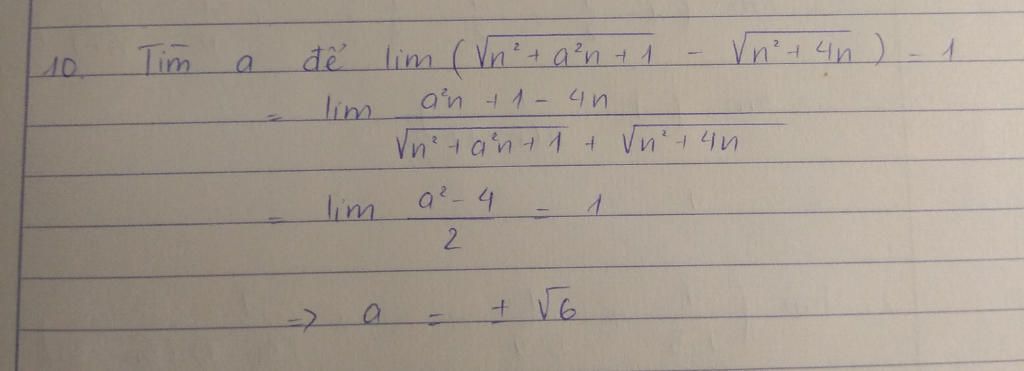 10. Tìm a để lim ( √n² + a²n + 1 - √n² + 4n ) = 1
= lim a²n + 1 - 4n
√n² + a²n + 1 + √n² + 4n
= lim a² - 4 = 1
2
=> a = ± √6